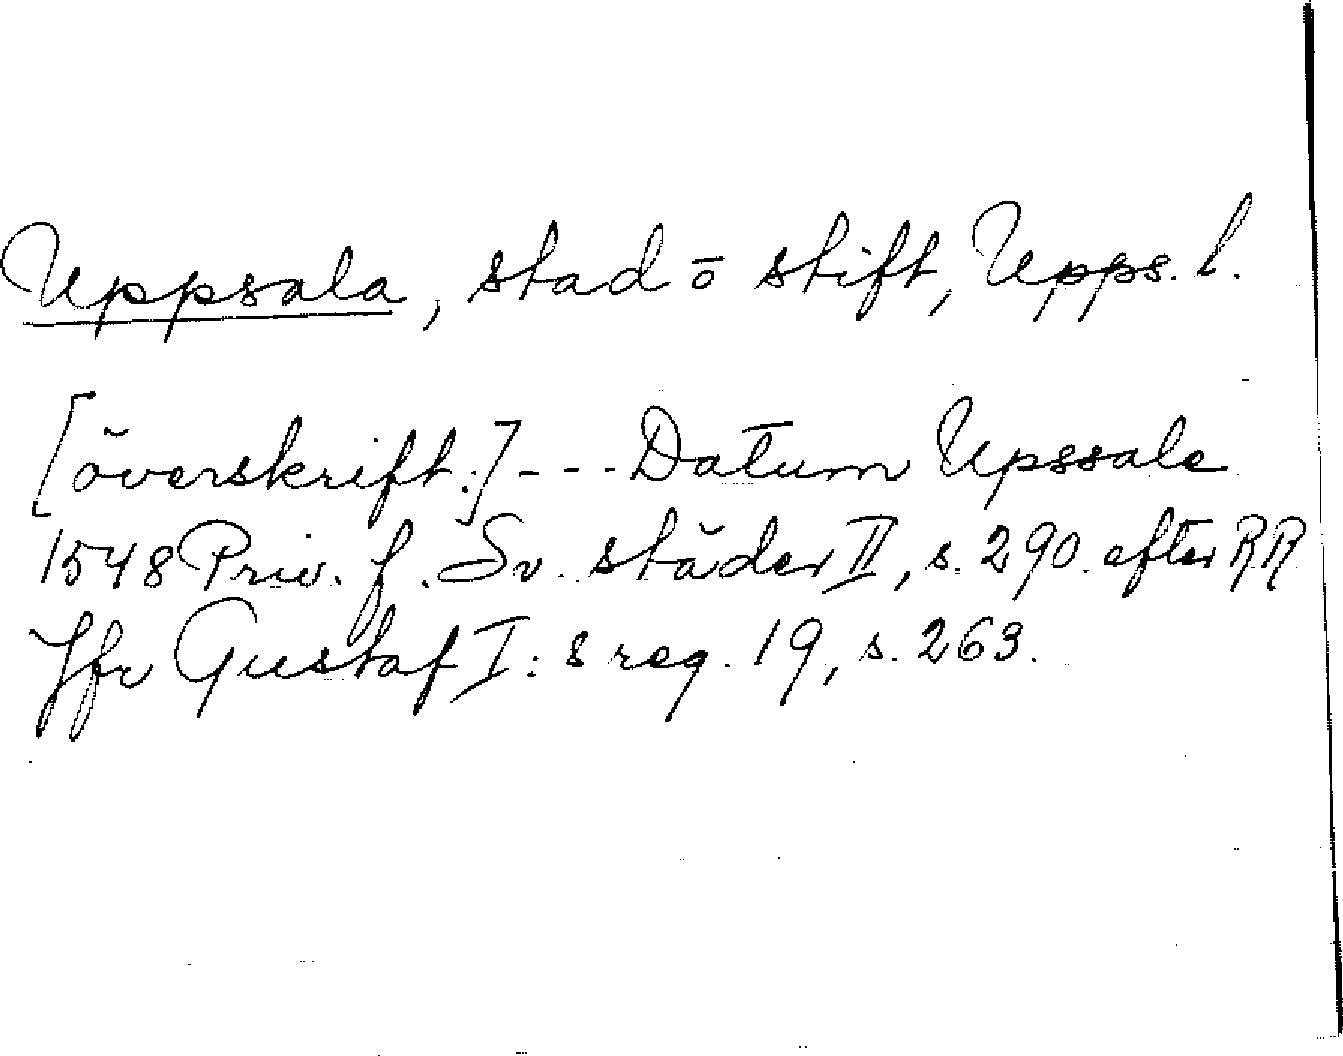 Uppsala, stad o stift, Upps. l.
[överskrift:] - - - Datum Upssale
1548 Priv. f. Sv. städer II, s. 290. efter RR
Jfr Gustaf I:s reg. 19, s. 263.